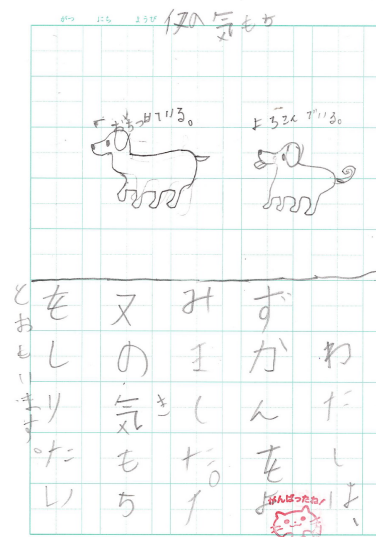 がつ にち ようび
イヌの気もち
おちついている。
よろこんでいる。
わたしは、
ずかんをよ
みました。イ
ヌの気もち
き
をしりたい
とおもいます。
がんばったね!